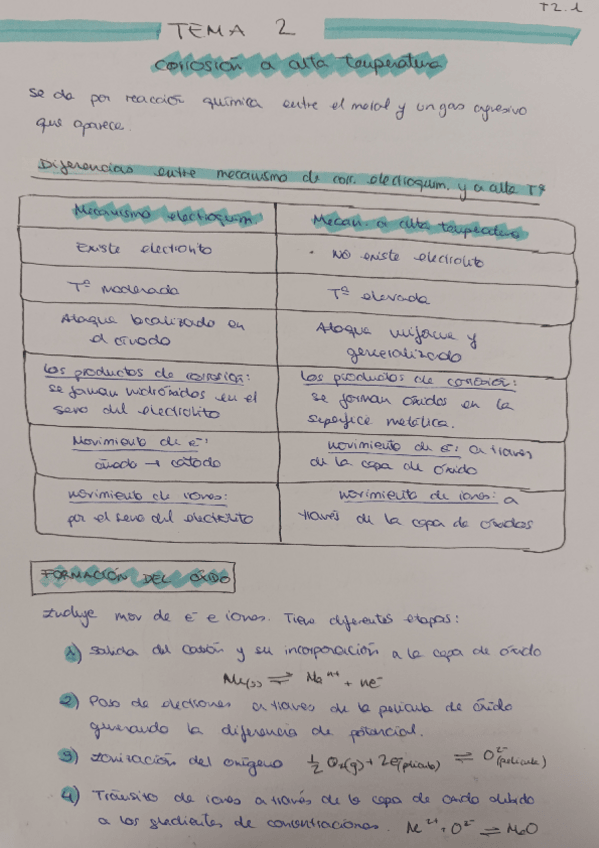 T2.1
TEMA 2
Corrosión a alta temperatura
Se da por reacción química entre el metal y un gas agresivo
que aparece.
Diferencias entre mecanismo de corr. electroquím. y a alta Tª
Mecanismo electroquím. Mecan. a alta temperatura
Existe electrolito · No existe electrolito
Tª moderada Tª elevada
Ataque localizado en Ataque uniforme y
el ánodo generalizado
Los productos de corrosión: Los productos de corrosión:
se forman hidróxidos en el se forman óxidos en la
seno del electrolito superficie metálica.
Movimiento de e⁻: movimiento de e⁻: a través
ánodo → cátodo de la capa de óxido
movimiento de iones: movimiento de iones: a
por el seno del electrolito través de la capa de óxidos
FORMACIÓN DEL ÓXIDO
Incluye mov de e⁻ e iones. Tiene diferentes etapas:
1) Salida del catión y su incorporación a la capa de óxido
Me(s) ⇌ Meⁿ⁺ + ne⁻
2) Paso de electrones a través de la película de óxido
generando la diferencia de potencial.
3) Ionización del oxígeno ½ O₂(g) + 2e⁻(película) ⇌ O²⁻(película)
4) Tránsito de iones a través de la capa de óxido debido
a los gradientes de concentraciones. Me²⁺ + O²⁻ ⇌ MeO